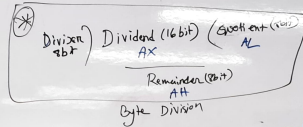 *
Divisor) Dividend (16bit) (Quotient (8bit)
8bit AX AL
Remainder (8bit)
AH
Byte Division